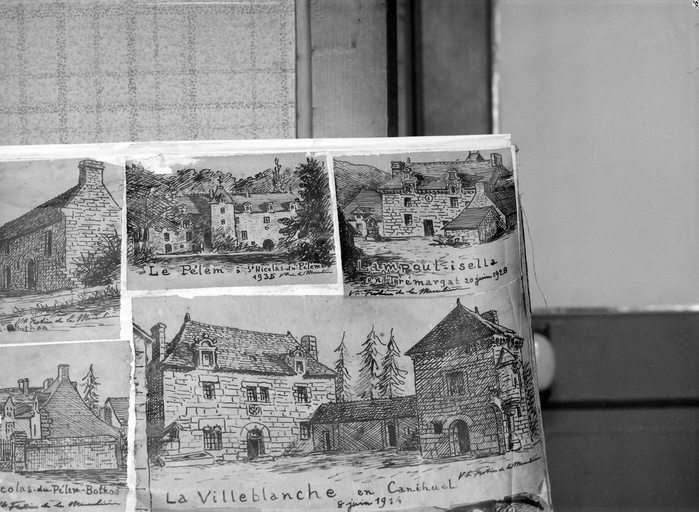 Le Pélem à St Nicolas-du-Pélem
1935
Lampoul-isella
en Trémargat 20 juin 1928
Vte Frotier de la Messelière
Bothoa
colas-du-Pélem-Bothoa
Vte Frotier de la Messelière
La Villeblanche en Canihuel
8 juin 1914
Vte Frotier de la Messelière